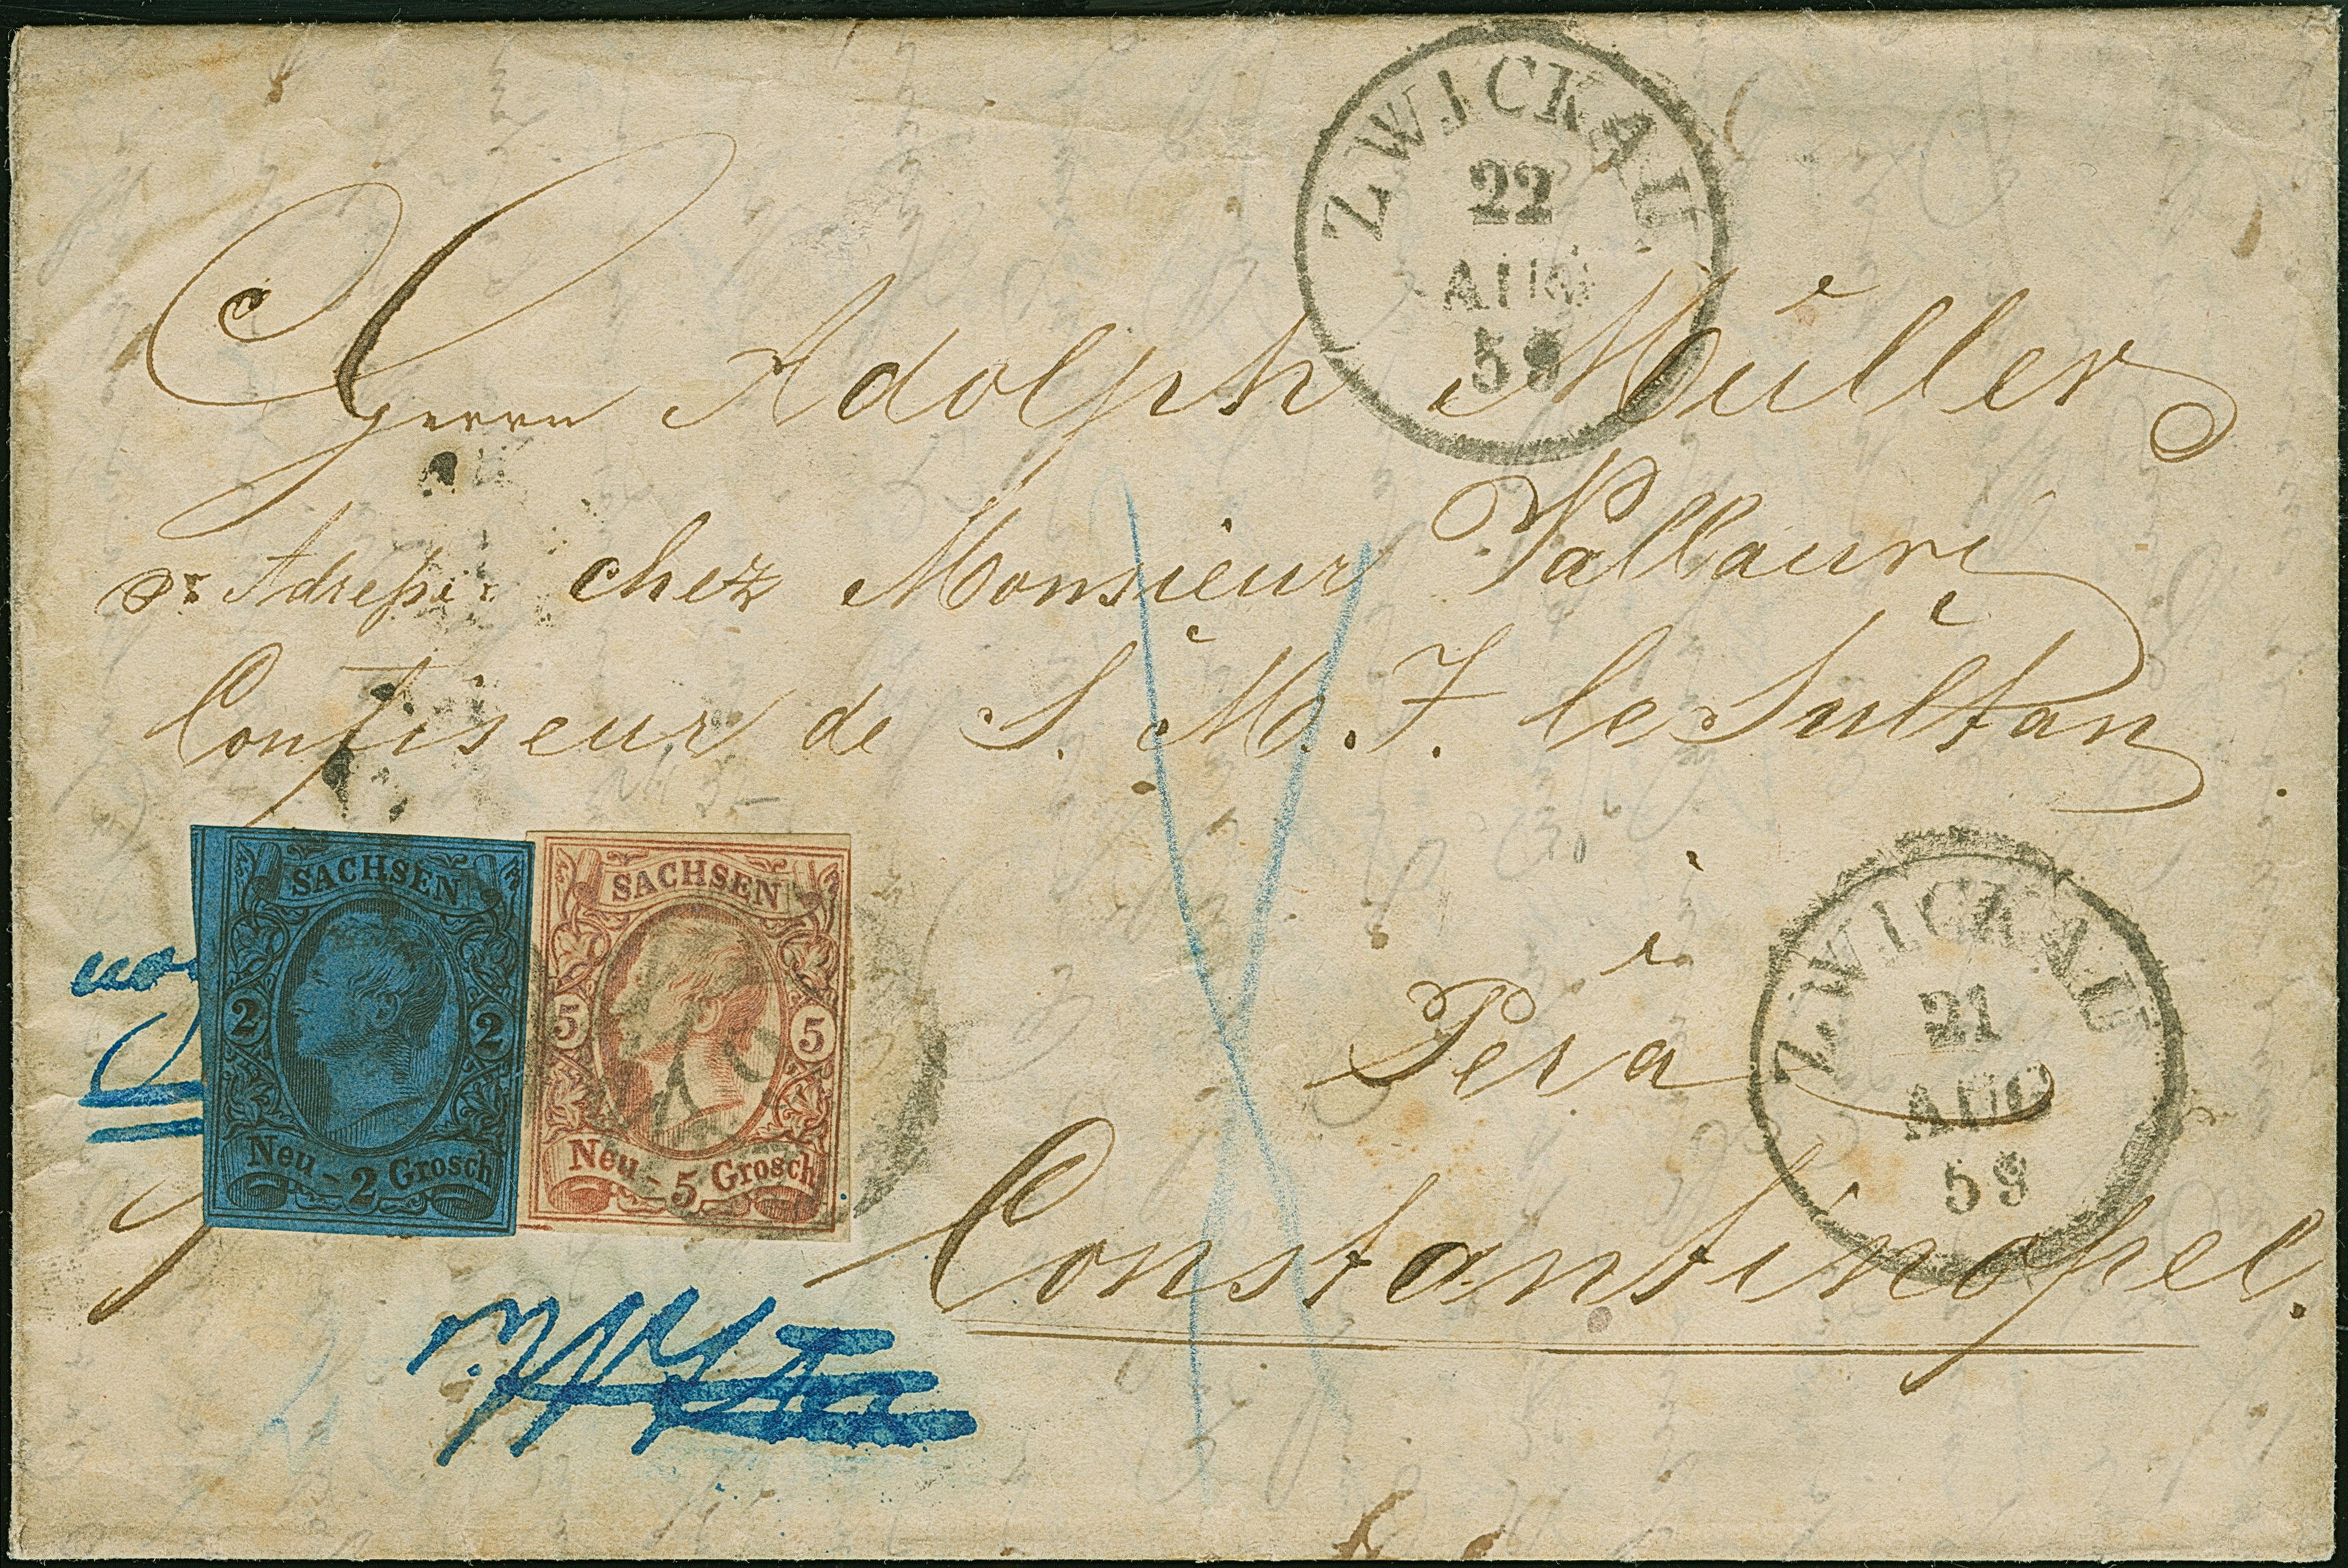 ZWICKAU
22
AUG
59
Herrn Adolph Müller
pr Adresse: chez Monsieur Vallauri
Confiseur de S. M. I. le Sultan
à
Péra
Constantinopel.
ZWICKAU
21
AUG
59
SACHSEN
2 2
Neu-2 Grosch
SACHSEN
5 5
Neu-5 Grosch